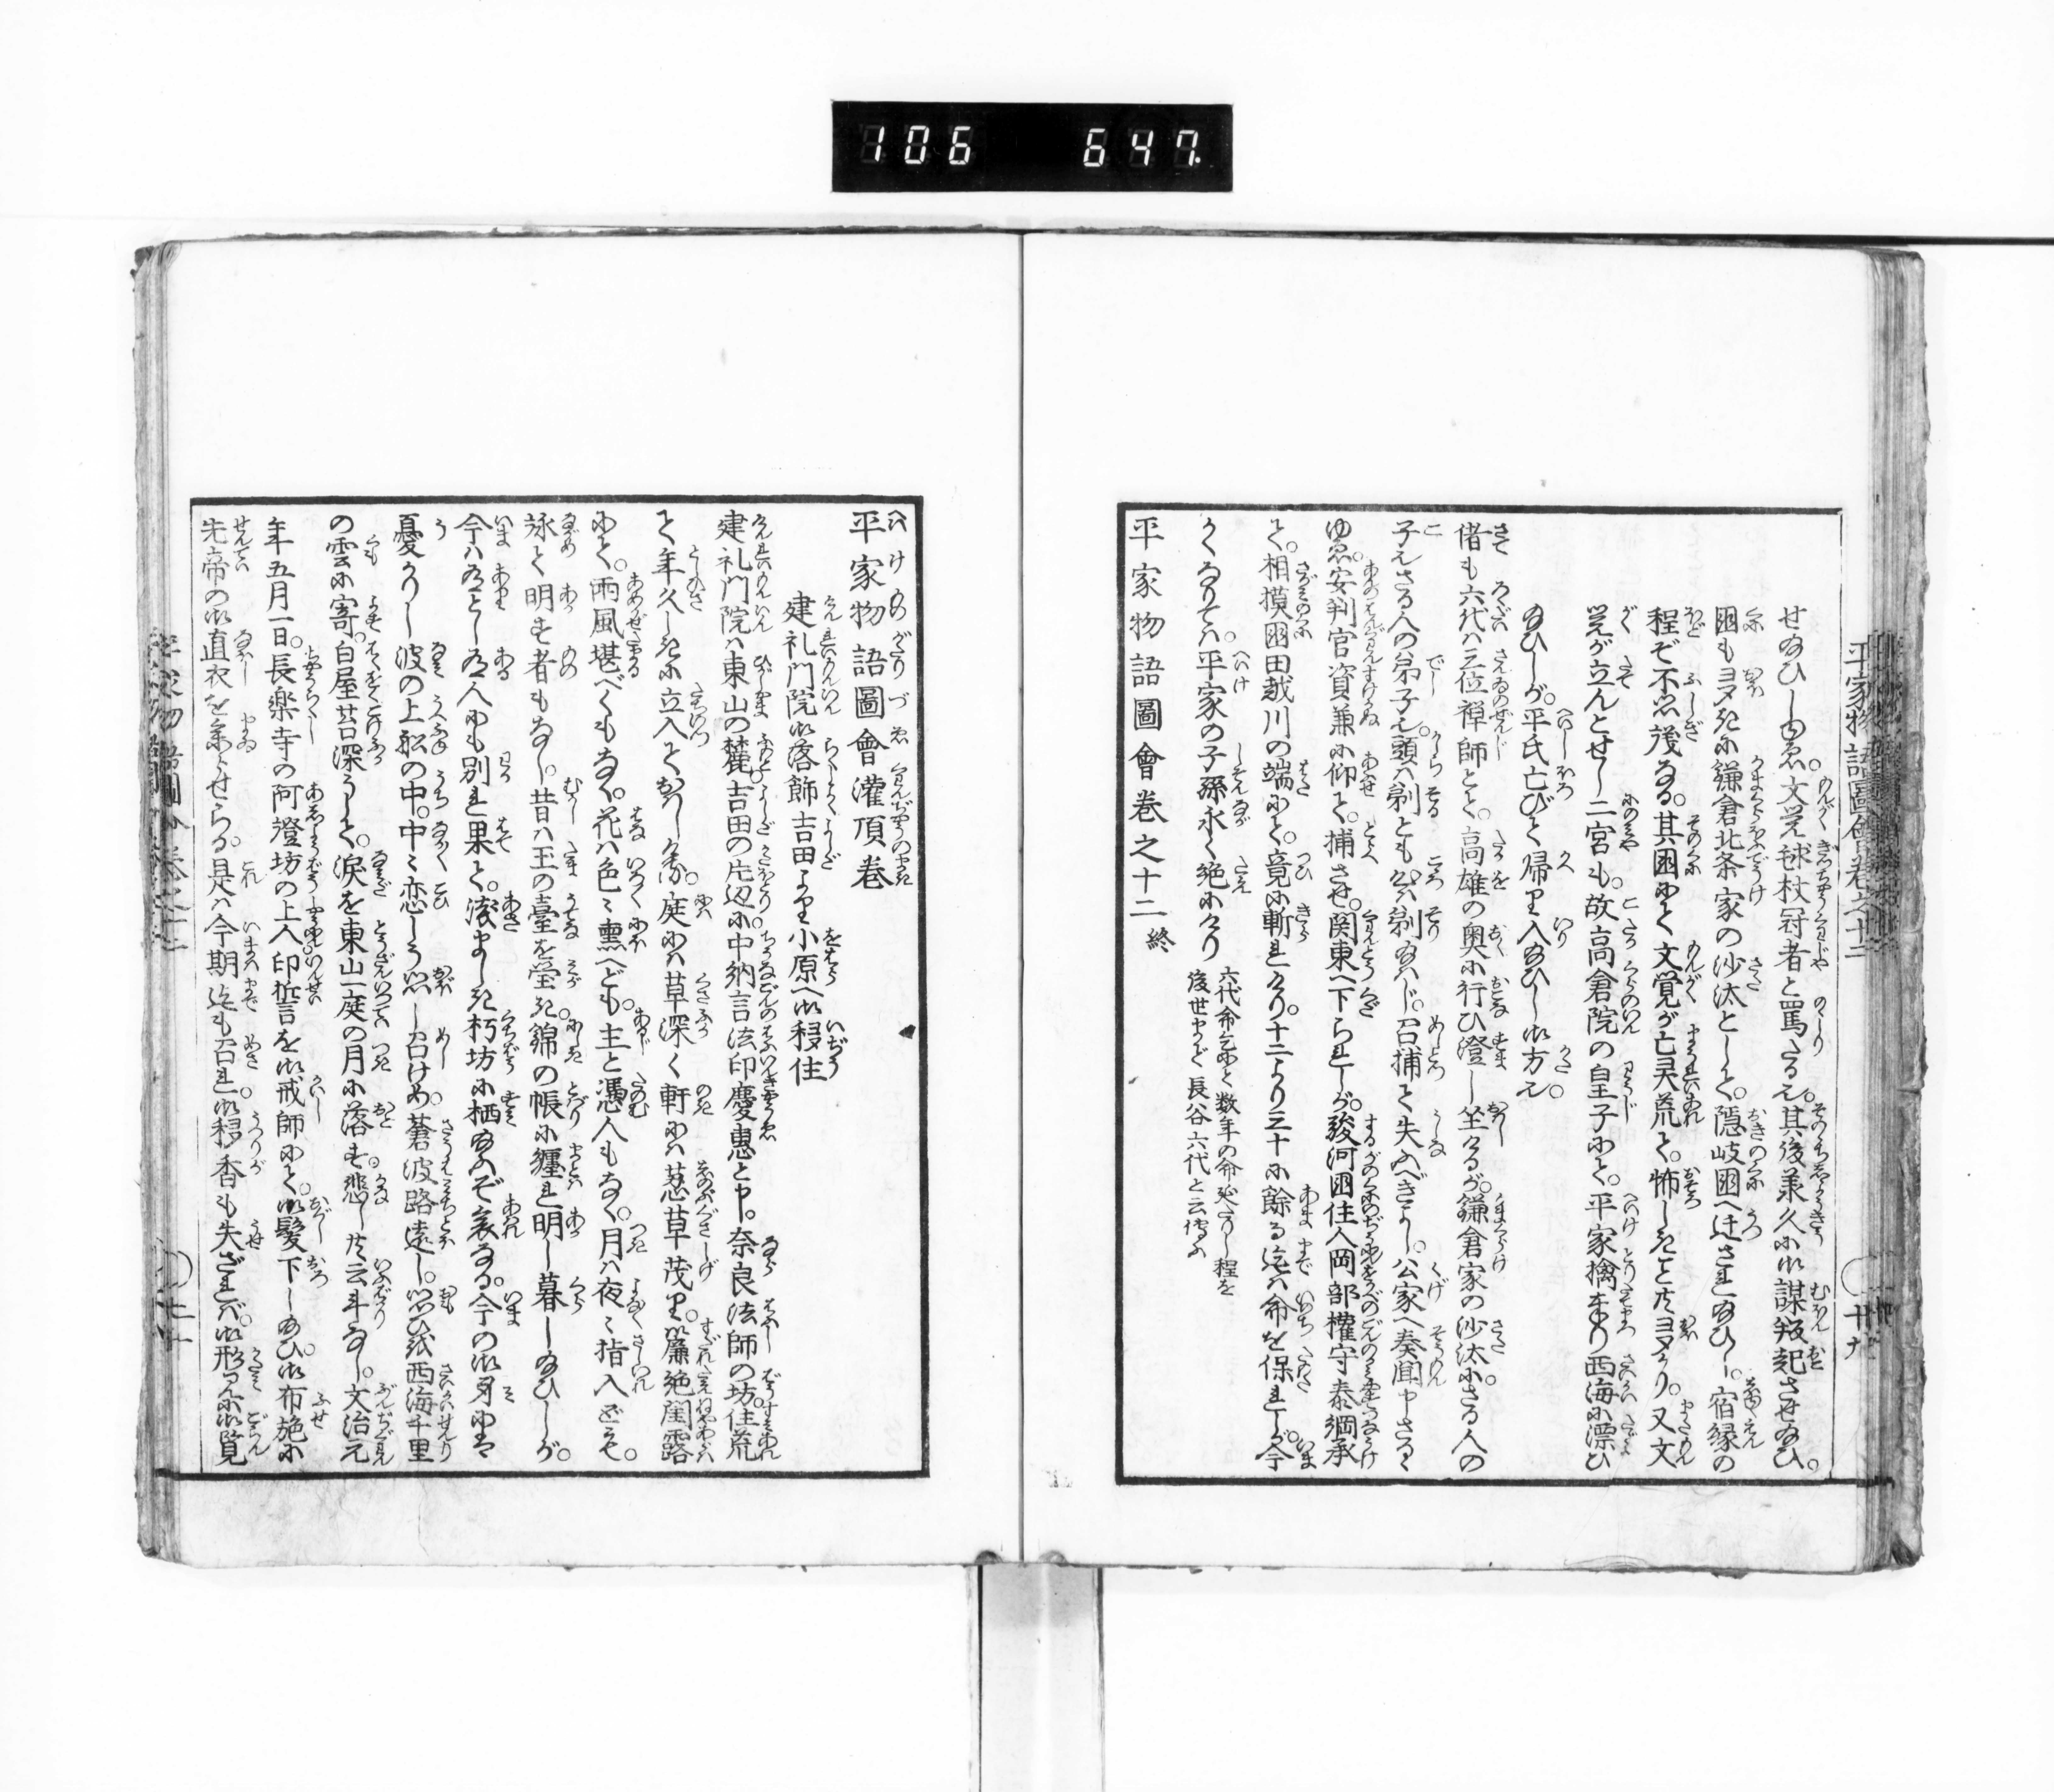 106 647
平家物語圖會卷之十二
十九
せ給ひしゆゑ。文覚毬杖冠者と罵たる也。其後承久に御謀叛起させ給ひ。
国もヨタに鎌倉北条家の沙汰として。隠岐国へ迁され給ひし。宿縁の
程ぞ不思議なる。其国にて文覚が亡灵荒て。怖しきとヨタかり。又文
覚が立んとせし二宮も。故高倉院の皇子にて。平家擒奉り西海に漂ひ
給ひしが。平氏亡びて帰り入給ひし御方也。
偖も六代は三位禅師とて。高雄の奥に行ひ澄し坐けるが。鎌倉家の沙汰に。さる人の
子也さる人の弟子也。頭は剃とも心は剃給はじ。召捕て失ふべきよし。公家へ奏聞申さるゝ
ゆゑ。安判官資兼に仰て。捕させ。関東へ下られしが。駿河国住人岡部權守泰綱承
て。相摸国田越川の端にて。竟に斬れけり。十二より三十に餘る迄は命を保れしが。今
かくなりては。平家の子孫永く絶にけり
六代命乞にて数年の命延たりし程を
後世まで長谷六代と云傳ふ
平家物語圖會卷之十二終
平家物語圖會灌頂卷
建礼門院御落飾吉田より小原へ御移住
建礼門院は東山の麓。吉田の片辺に。中納言法印慶惠と申。奈良法師の坊。住荒
て年久しきに立入ておはしけり。庭には草深く軒には葱草茂り。簾絶閨露
にて。雨風堪べくもなく。花は色々裛へども。主と憑人もなく。月は夜々指入ども。
詠て明す者もなし。昔は玉の臺を瑩き。錦の帳に纏れ明し暮し給ひしが。
今はありとしある人にも別れ果て。淺ましき朽坊に栖給ふぞ哀なる。今の御身には
憂かりし波の上舩の中。中々恋しう思し召けめ。蒼波路遠し。思ひ於西海千里
の雲に寄。白屋苔深うして。涙を東山一庭の月に落す。悲し共云斗なし。文治元
年五月一日。長楽寺の阿澄坊の上人印誓を御戒師にて。御髪下し給ひ。御布施に
先帝の御直衣を参らせらる。是は今期迄も召れ。御移香も失ざれば。御形見に御覧